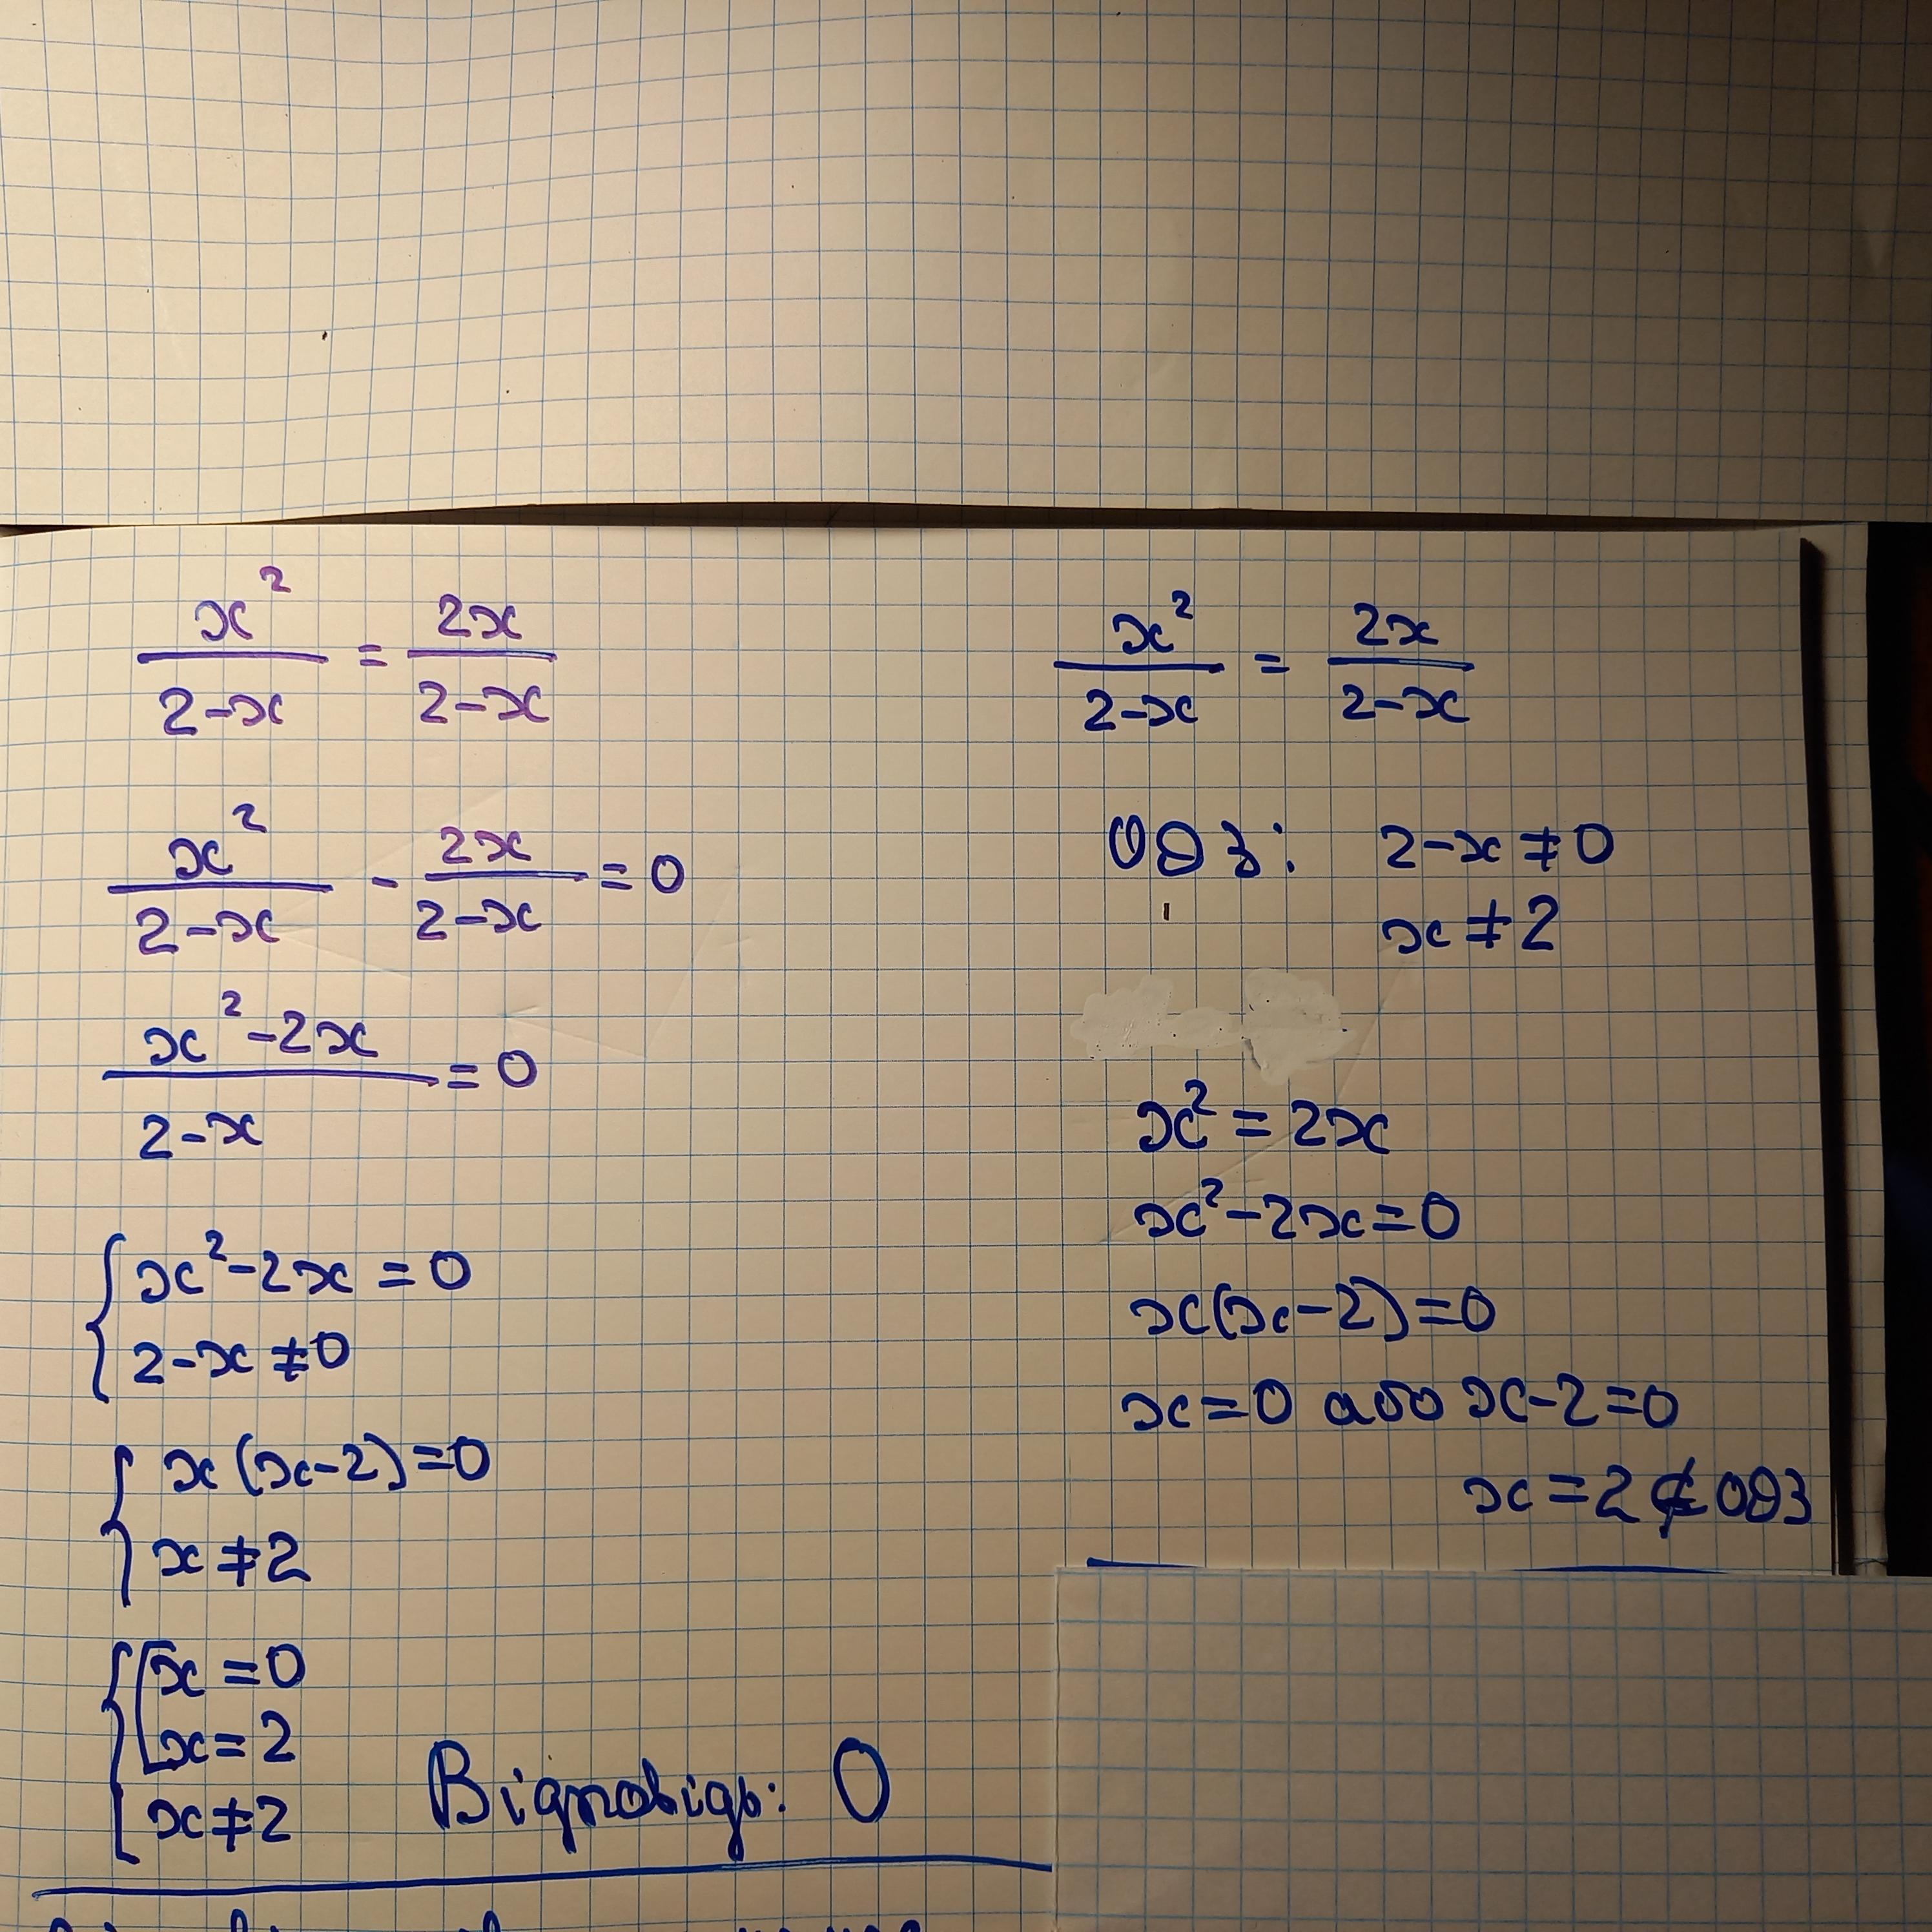 x²/(2-x) = 2x/(2-x)
x²/(2-x) - 2x/(2-x) = 0
(x²-2x)/(2-x) = 0
{ x²-2x = 0
2-x ≠ 0
{ x(x-2)=0
x ≠ 2
{ [ x = 0
x = 2
x ≠ 2
Відповідь: 0
x²/(2-x) = 2x/(2-x)
ОДЗ: 2-x ≠ 0
x ≠ 2
x² = 2x
x²-2x=0
x(x-2)=0
x=0 або x-2=0
x=2 ∉ ОДЗ